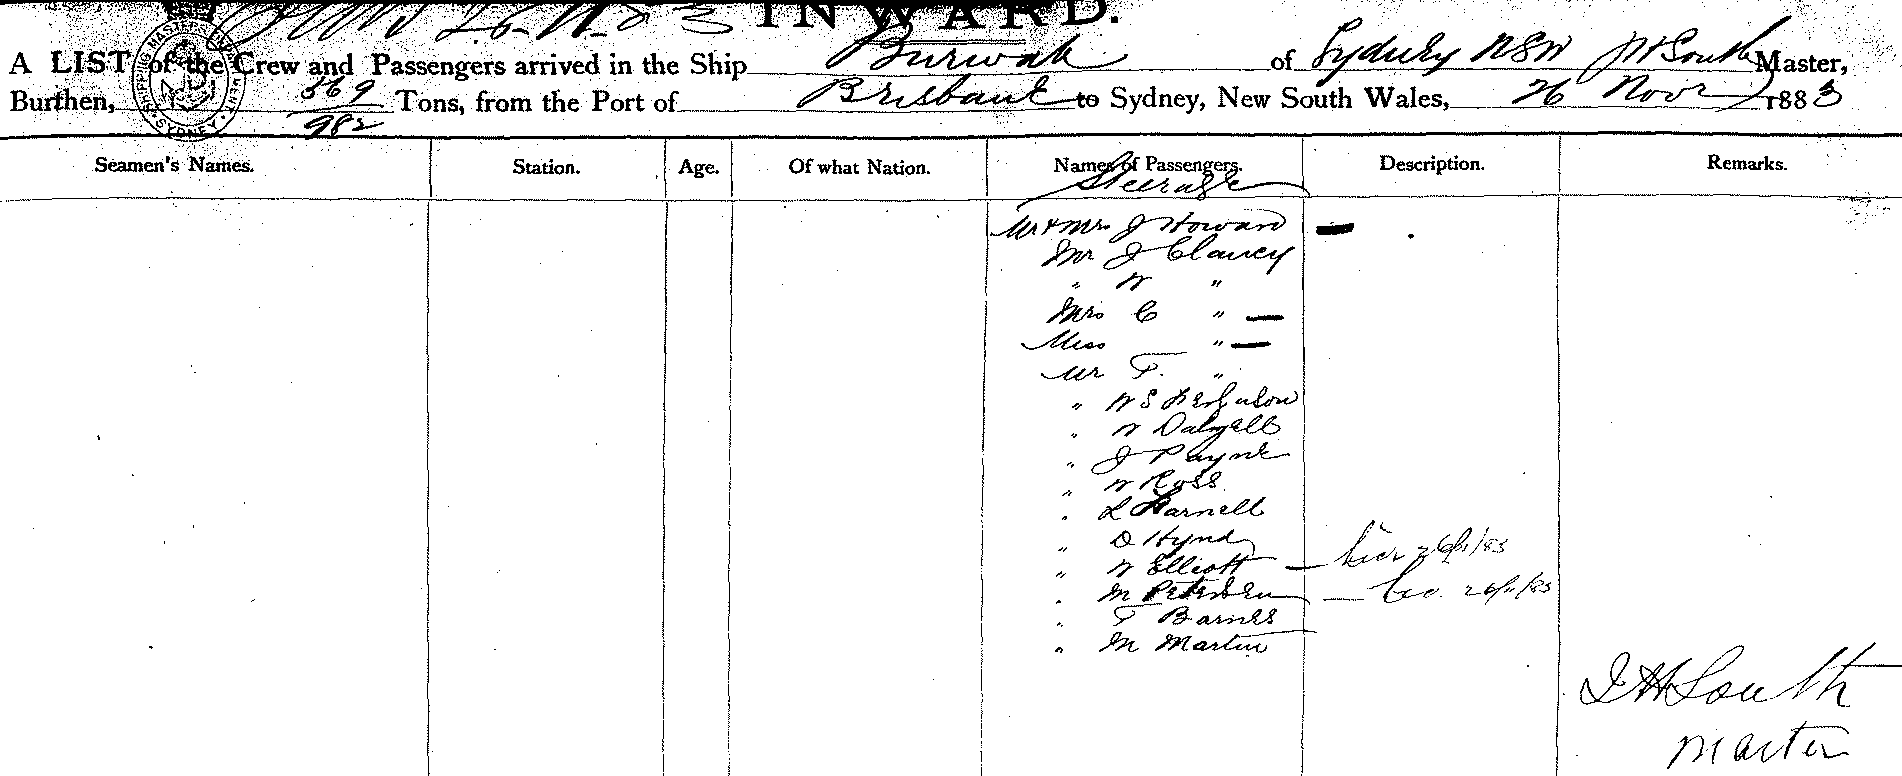 26-11-83 INWARD.
A LIST of the Crew and Passengers arrived in the Ship Burwah of Sydney NSW JH South Master,
Burthen, 569 Tons, from the Port of Brisbane to Sydney, New South Wales, 26 Novr 1883
982
SHIPPING MASTER SYDNEY
Seamen's Names. Station. Age. Of what Nation. Names of Passengers. Description. Remarks.
Steerage
Mr & Mrs J Howard —
Mr J Clancy
" W "
Mrs C " —
Miss " —
Mr F. "
" W S Ferguson
" W Dalzell
" J Payne
" W Ross
" L Harnell
" D Hynd
" W Elliott — 26/11/83
" M Petersen — 26/11/83
" F Barnes
" M Martin
JH South
Master